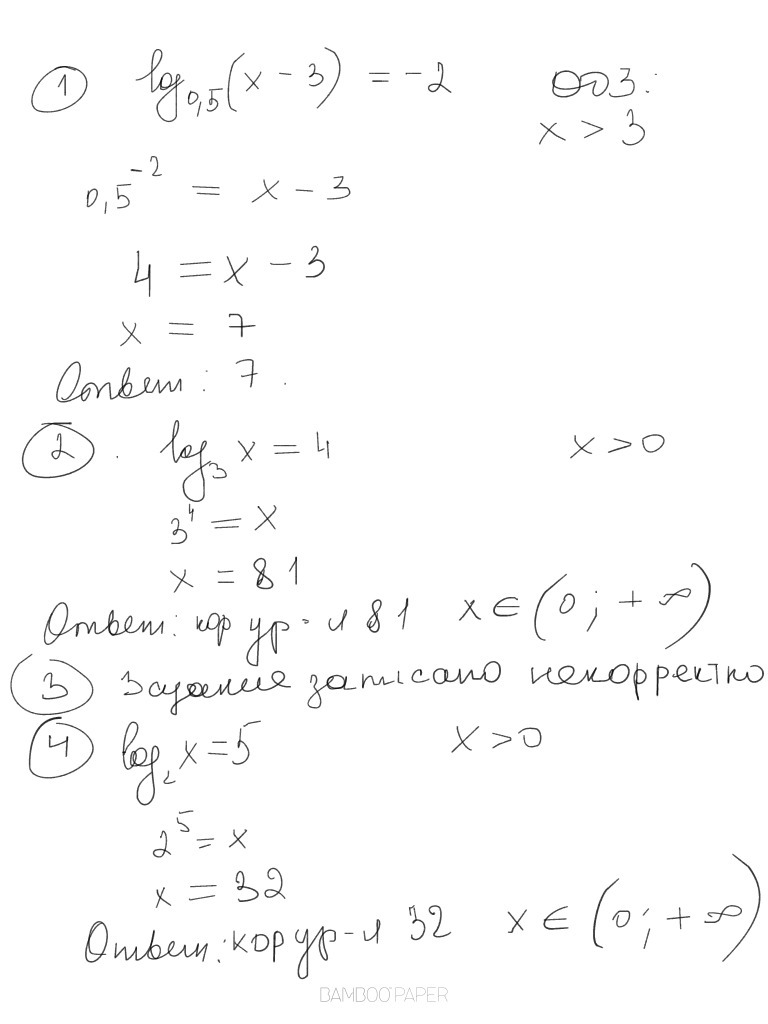 1 log₀,₅(x - 3) = -2 ОДЗ:
x > 3
0,5⁻² = x - 3
4 = x - 3
x = 7
Ответ: 7.
2. log₃ x = 4 x > 0
3⁴ = x
x = 81
Ответ: кор ур-я 81 x ∈ (0; +∞)
3 Задание записано некорректно
4 log₂ x = 5 x > 0
2⁵ = x
x = 32
Ответ: кор ур-я 32 x ∈ (0; +∞)
BAMBOO PAPER